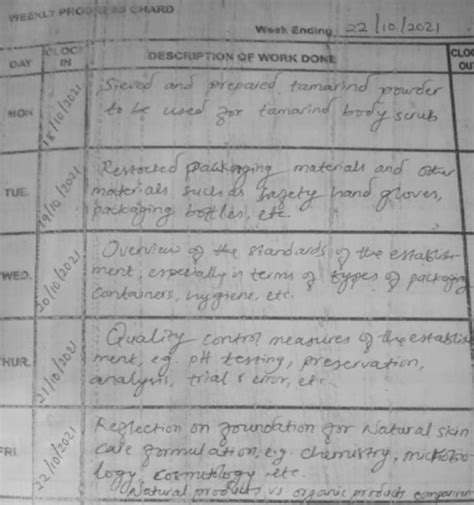 WEEKLY PROGRESS CHARD
Week Ending 22/10/2021
DAY CLOCK IN DESCRIPTION OF WORK DONE CLOC OUT
MON 18/10/2021 Sieved and prepared tamarind powder
to be used for tamarind body scrub
TUE. 19/10/2021 Restocked packaging materials and other
materials such as safety hand gloves,
packaging bottles, etc.
WED. 20/10/2021 Overview of the standards of the establish-
ment, especially in terms of types of packaging
containers, hygiene, etc.
HUR. 21/10/2021 Quality control measures of the establish
ment, e.g. pH testing, preservation,
analysis, trial & error, etc.
FRI. 22/10/2021 Reflection on foundation for Natural skin
care formulation, e.g. chemistry, microbio-
logy, cosmetology etc.
Natural products vs organic products comparison